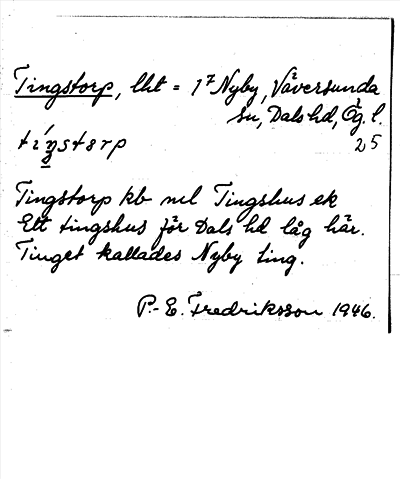 Tingstorp, lht = 1⁷ Nyby, Väversunda
sn, Dals hd, Ög. l.
25
Tingstorp kb nel Tingshus ek
Ett tingshus för Dals hd låg här.
Tinget kallades Nyby ting.
P.-E. Fredriksson 1946.